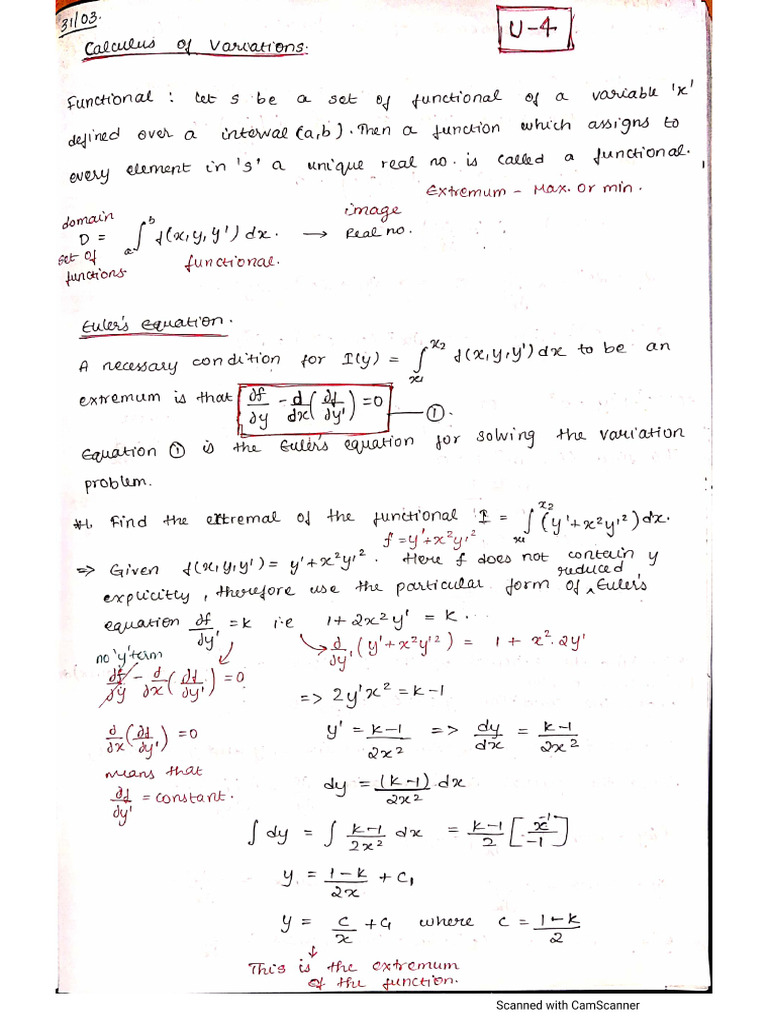 31/03.
U-4
Calculus of Variations:
Functional : Let s be a set of functional of a variable 'x'
defined over a interval (a,b). Then a function which assigns to
every element in 's' a unique real no. is called a functional.
Extremum - Max. or min.
domain
D = ∫ₐᵇ f(x,y,y') dx. → Real no.
image
set of
functions
functional.
Euler's Equation.
A necessary condition for I(y) = ∫ₓ₁ˣ² f(x,y,y')dx to be an
extremum is that ∂f/∂y - d/dx(∂f/∂y') = 0 — ①.
Equation ① is the Euler's equation for solving the variation
problem.
#1. Find the extremal of the functional I = ∫ₓ₁ˣ² (y'+x²y'²)dx.
f = y'+x²y'²
=> Given f(x,y,y') = y'+x²y'². Here f does not contain y
explicitly, therefore use the particular reduced form of ^ Euler's
equation ∂f/∂y' = k i.e 1+2x²y' = k.
∂/∂y' (y'+x²y'²) = 1 + x².2y'
no 'y' term
∂f/∂y - d/dx(∂f/∂y') = 0
=> 2y'x² = k-1
∂/∂x(∂f/∂y') = 0
y' = k-1/2x² => dy/dx = k-1/2x²
means that
∂f/∂y' = constant.
dy = (k-1)/2x² dx
∫dy = ∫ k-1/2x² dx = k-1/2 [x⁻¹/-1]
y = 1-k/2x + c₁
y = c/x + c₁ where c = 1-k/2
This is the extremum
of the function.
Scanned with CamScanner